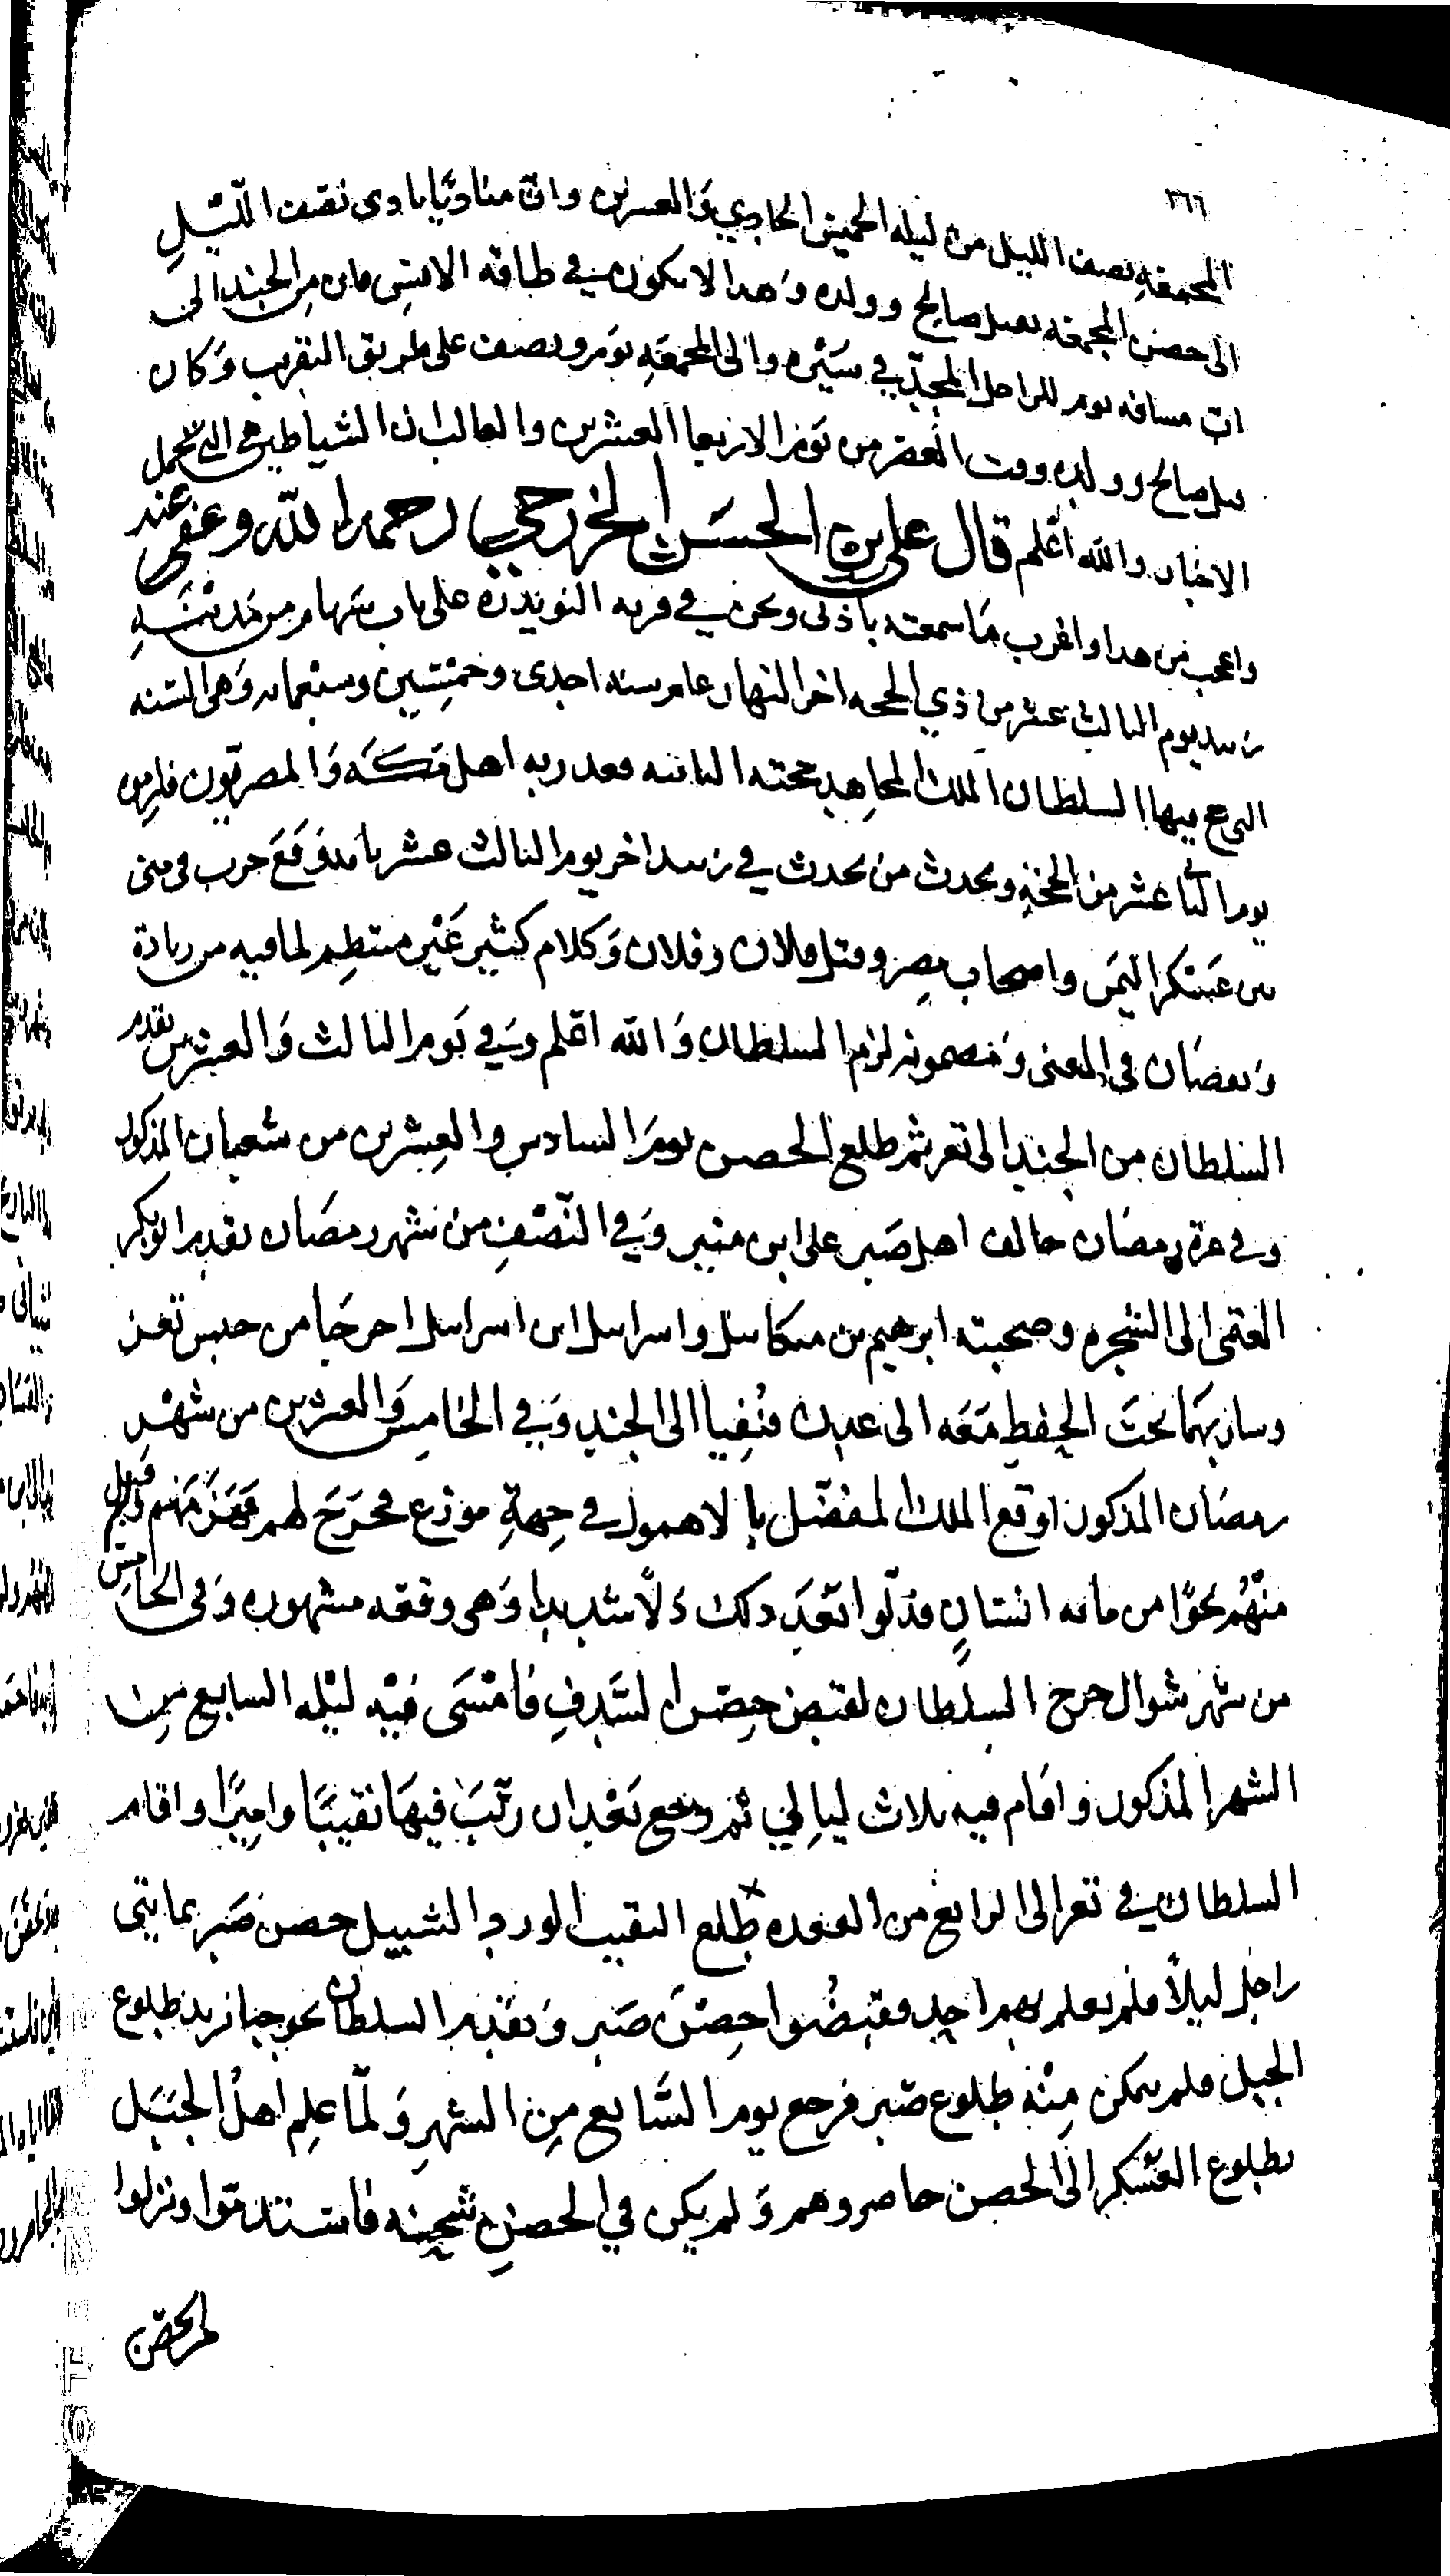 ٣٦٦
المجمعة نصف الليل من ليلة الخميس الحادي والعشرين وان مناديا نادى نصف الليل
الى حصن المجمعة بقتل صالح وولده وهذا لا يكون في طاقة الانس فان من الجند الى
اب مسافة يوم للراجل المجد في سيره والى المجمعة يوم ونصف على طريق التقريب وكان
قتل صالح وولده وقت العصر من يوم الاربعا العشرين والغالب ان الشياطين هي التي تحمل
الاخبار والله اعلم قال علي بن الحسن الخزرجي رحمه الله وعفى عنه
واعجب من هذا واغرب ما سمعته باذني ونحن في قرية النويدرة على باب سهام من مدينة
زبيد يوم الثالث عشر من ذي الحجة اخر النهار عام سنة احدى وخمسين وسبعماية وهي السنة
التي حج فيها السلطان الملك المجاهد حجته الثانية فغدر به اهل مكة والمصريون فلزم
يوم الثاني عشر من الحجة وتحدث من تحدث في زبيد اخر يوم الثالث عشر بانه وقع حرب في منى
بين عسكر اليمن واصحاب مصر وقتل فلان وفلان وكلام كثير غير منتظم لما فيه من زيادة
ونقصان في المعنى ومضمونه لزام السلطان والله اعلم وفي يوم الثالث والعشرين تقدم
السلطان من الجند الى تعز ثم طلع الحصن يوم السادس والعشرين من شعبان المذكور
وفي غرة رمضان خالف اهل صبر على ابن منير وفي النصف من شهر رمضان تقدم ابو بكر
الغتمى الى الشجرة وصحبته ابرهيم بن ميكاييل واسراييل ابن اسراييل اخرجا من حبس تعز
وسار بهما تحت الحفظ معه الى عدن فنفيا الى الجند وفي الخامس والعشرين من شهر
رمضان المذكور اوقع الملك المفضل بالاهمول في جهة موزع فخرج لهم فهزمهم وقتل
منهم نحوا من ماية انسان فذلوا بعد ذلك ذلا شديدا وهي وقعة مشهورة وفي الخامس
من شهر شوال خرج السلطان لقبض حصن السدف فامسى فيه ليلة السابع من
الشهر المذكور واقام فيه ثلاث ليالي ثم رجع بعد ان رتب فيها نقيبا واميرا واقام
السلطان في تعز الى الرابع من القعدة طلع النقيب الورد الشبيل حصن صبر بمايتي
راجل ليلا فلم يعلم بهم احد فقبضوا حصن صبر وتقدم السلطان نحو جبا نريد طلوع
الجبل فلم يمكن منه طلوع صبر فرجع يوم السابع من الشهر ولما علم اهل الجبل
بطلوع العسكر الى الحصن حاصروهم ولم يكن في الحصن شحينة فاستذموا ونزلوا